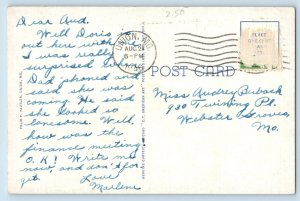 2.50
Dear Aud.
Will Doris
out here with
I was really
surprised when
Dad phoned and
said she was
coming. He said
she looked said
lonesome. Well,
how was the
finance meeting
O.K.! Write me
now, and don't for
get. Love
Marlene
UNION, MO.
AUG 2
6 - PM
PLACE
POST CARD
Miss Audrey
930 Twining Pl.
Webster Groves
Mo.